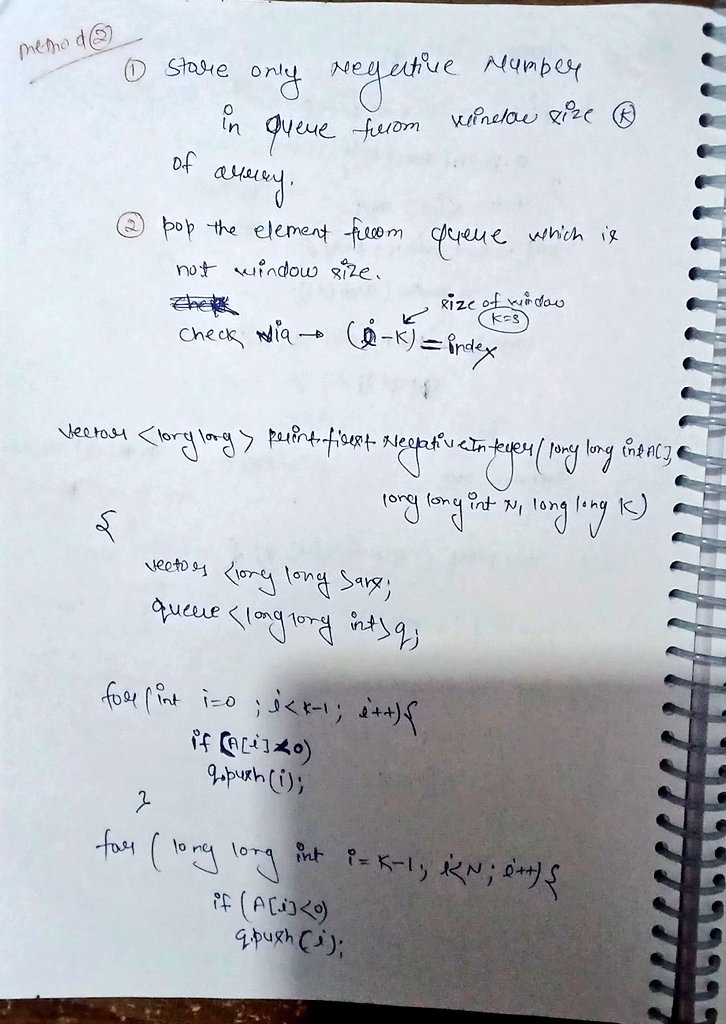 method ②
① store only Negative Number
in queue from window size Ⓚ
of array.
② pop the element from queue which is
not window size.
size of window
K=3
check via → (i-K) = index
vector <long long> printfirstNegativeInteger(long long int A[],
long long int N, long long K)
{
vector <long long> arr;
queue <long long int> q;
for (int i=0 ; i<K-1; i++){
if (A[i]<0)
q.push(i);
}
for ( long long int i=K-1; i<N; i++){
if (A[i]<0)
q.push(i);